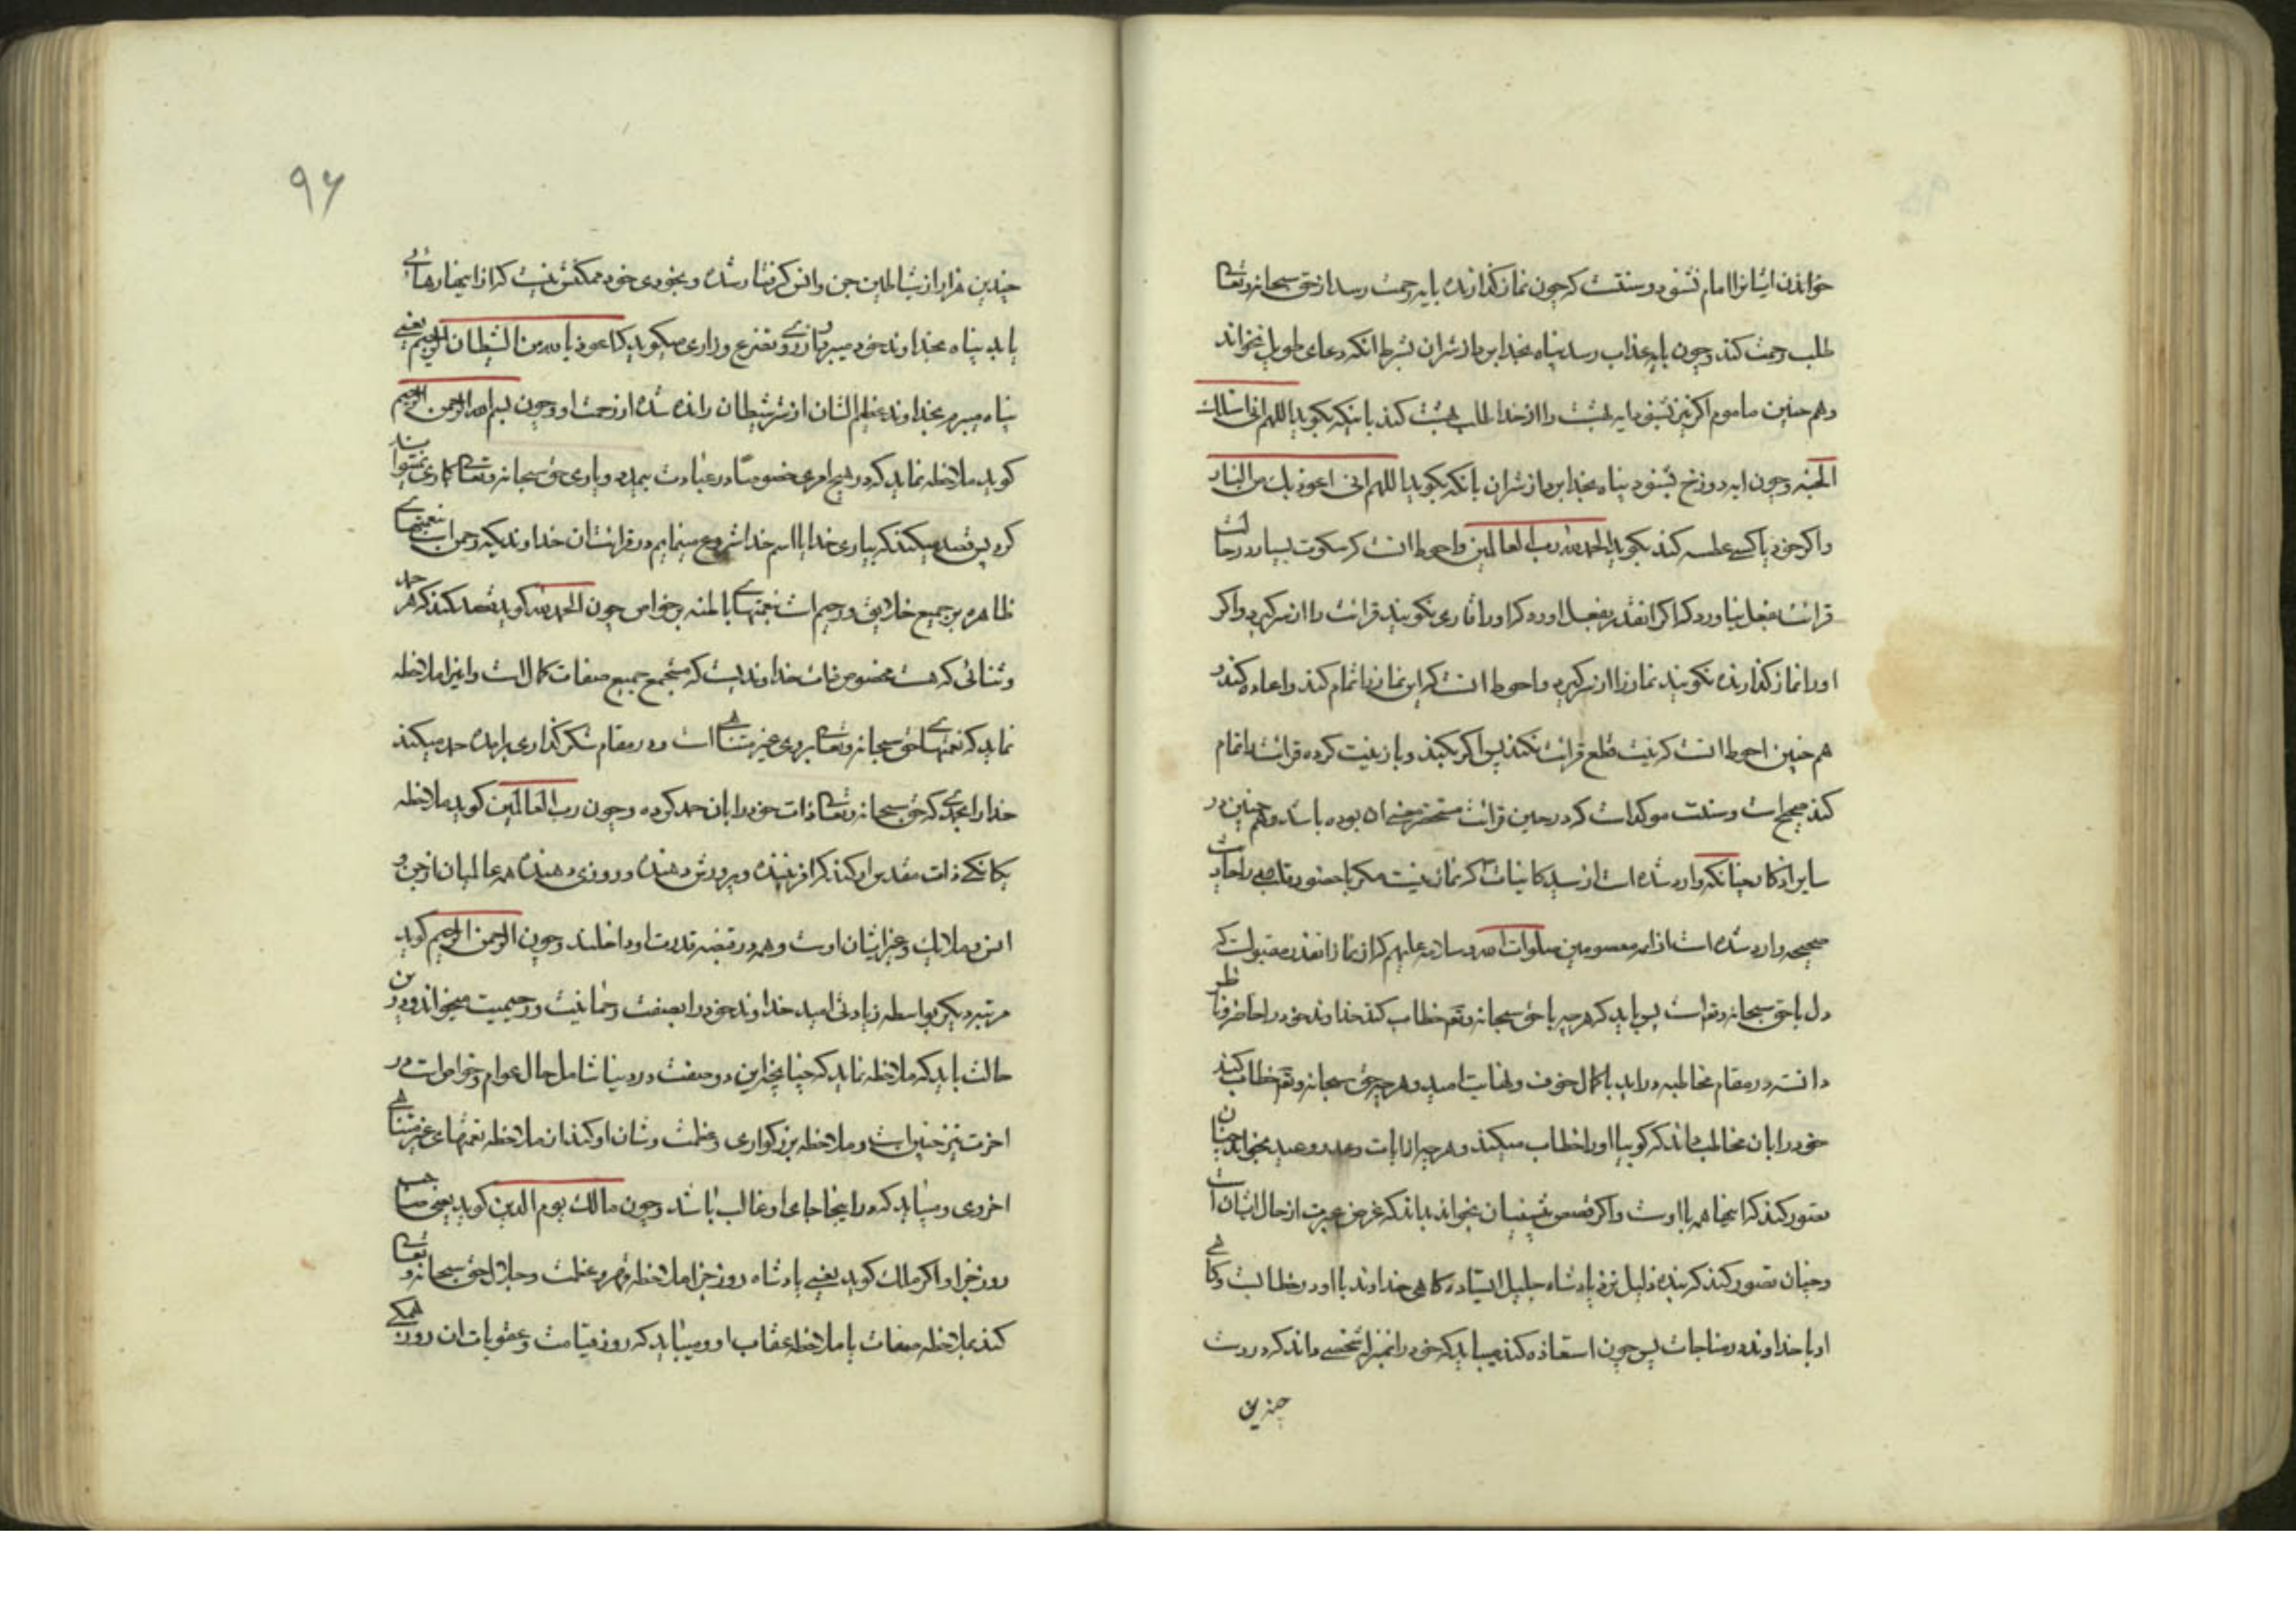 خواندن ایشانرا امام نشنود و سنتست که چون نماز گذارنده بایه رحمت رسد از حق سبحانه و تعالی
طلب رحمت کند و چون بایه عذاب رسد پناه بخدا برد از شر ان بشرط انکه دعای طویل نخواند
و هم چنین ماموم اگر نیز بشنود ایه بهشت را از خدا طلب بهشت کند باینکه بکوید اللهم انی اسئلک
الجنه و چون ایه دوزخ بشنود پناه بخدا برد از شر ان بانکه بکوید اللهم انی اعوذ بک من النار
و اکر خود یا کسی عطسه کند بکوید الحمد لله رب العالمین و احوط انست که سکوت بسیار در حالت
قرائت بفعل نیاورد که اگر انقدر بفعل اورد که اورا قاری نکویند قرائت را از سر کیرد و اکر
اورا نماز کذارنده نکویند نماز را از سر کیرد و احوط انست که این نماز را تمام کند و اعاده کند و
هم چنین احوط انست که نیت قطع قرائت نکند پس اکر بکند و باز نیت کرده قرائت را تمام
کند صحیح است و سنت موکد است که در حین قرائت مستحضر معنی ان بوده باشد و هم چنین در
سایر اذکار چنانکه وارد شده است از سید کاینات ص که نماز نیست مکر با حضور قلب و در احادیث
صحیحه وارد شده است از ائمه معصومین صلوات الله و سلامه علیهم که از نماز انقدر مقبولست که
دل با حق سبحانه و تعالی است پس باید که هر چه با حق سبحانه و تعالی خطاب کند خداوند خود را حاضر و ناظر
دانسته در مقام مخاطبه در اید با کمال خوف و نهایت امید و هر چه حق سبحانه و تعالی خطاب کند
خود را بان مخاطب داند که کویا اورا خطاب میکند و هر چه از ایات وعد و وعید بخواند چنان
تصور کند که اینها همه با اوست و اکر قصص پیشینیان بخواند بداند که غرض عبرت از حال ایشان است
و چنان تصور کند که بنده ذلیل نزد پادشاه جلیل ایستاده کاهی خداوند با او در خطاب است و کاهی
او با خداوند در مناجات پس چون استعاذه کند میباید که خود را بمنزله شخصی داند که در دست
چندین
۹۶
چندین هزار از شیاطین جن و انس کرفتار شده و بخودی خود ممکنش نیست که از اینها رهائی
یابد پناه بخداوند خود میبرد و از روی تضرع و زاری میکوید که اعوذ بالله من الشیطان الرجیم یعنی
پناه میبرم بخداوند عظیم الشان از شر شیطان رانده شده از رحمت او و چون بسم الله الرحمن الرحیم
کوید ملاحظه نماید که در هیچ امری خصوصا در عبادت بیمدد و یاری حق سبحانه و تعالی کاری نمیتواند
کرد پس قصد میکند که بیاری خدا یا باسم خدا شروع مینمایم در قرائت ان خداوندیکه رحمن است بنعمتهای
ظاهره بر جمیع خلایق و رحیم است بنعمتهای باطنه بر خواص چون الحمد لله کوید قصد کند که هر حمد
و ثنائی که هست مخصوص ذات خداوندیست که مستجمع جمیع صفات کمال است و اینرا ملاحظه
نماید که نعمتهای حق سبحانه و تعالی بر وی غیر متناهی است و در مقام شکر کذاری برامده حمد میکند
خدا را بحمدی که حق سبحانه و تعالی ذات خود را بان حمد کرده و چون رب العالمین کوید ملاحظه
یکانکی ذات مقدس او کند که افریننده و پرورش دهنده و روزی دهنده همه عالمیان از جن و
انس و ملایک و غیر ایشان اوست و همه در قبضه قدرت او داخلند و چون الرحمن الرحیم کوید
مرتبه دیکر بواسطه زیادتی امید خداوند خود را بصفت رحمانیت و رحیمیت میخواند و درین
حالت باید که ملاحظه نماید که چنانچه این دو صفت در دنیا شامل حال عوام و خواص است در
اخرت نیز چنین است و ملاحظه بزرکواری و عظمت و شان او کند از ملاحظه نعمتهای غیر متناهی
اخروی و میباید که در اینجا رجای او غالب باشد و چون مالک یوم الدین کوید یعنی صاحب
روز جزا و اکر ملک کوید یعنی پادشاه روز جزا ملاحظه قهر و عظمت و جلال حق سبحانه و تعالی
کند بملاحظه صفات یا ملاحظه عقاب او و میباید که روز قیامت و عقوبات ان روز همکی